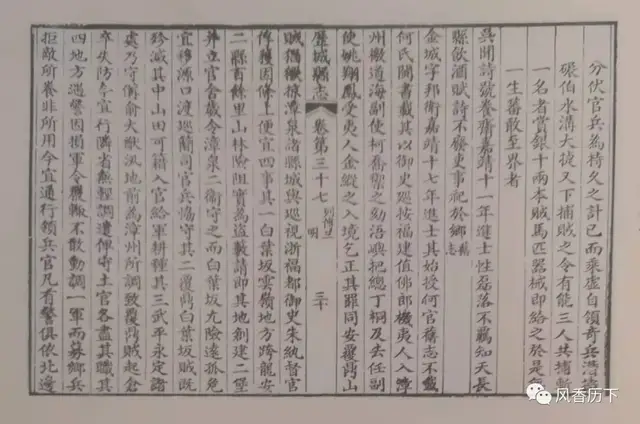 分伏官兵為持久之計已而乘虛自領奇兵潛
碾伯水溝大捷又下捕賊之令有能三人共捕斬
一名者賞銀十兩本賊馬匹器械即給之於是
一生蕃散至界者
吳聞詩號養齋嘉靖十一年進士性磊落不羈知天長
縣飲酒賦詩不廢吏事祀於鄉舊志
金城字邦衛嘉靖十七年進士其始授何官舊志不載
何氏閩書載其以御史巡按福建值佛郎機夷人入漳
州檄巡海副使柯喬禦之劾浯嶼把總丁桐及去任副
使姚翔鳳受夷人金縱之入境乞正其罪同安覆鼎山
歷城縣志 卷第三十七 列傳三 明 三十
賊猖獗掠漳泉諸縣城與巡視浙福都御史朱紈督官
俘獲因條上便宜四事其一白葉坂雲嶺地方跨龍安
二縣百餘里山林險阻實為盜藪請即其地創建二堡
并立官倉歲令漳泉二衛守之而白葉坂九險遠孤危
宜移源口渡巡簡司官兵協守其二覆鼎白葉坂賊既
殄滅其中山田可籍入官給軍耕種其三武平永定諸
處乃守備俞大猷汛地前為漳州所調致覆鼎賊起倉
卒失防今宜行隣省無輕調遣俾守土官各盡其職其
四地方遇警因獨軍令輒不散動調一軍而募鄉兵
拒敵所養非所用今宜通行領兵官凡有警俱依北邊
风香历下